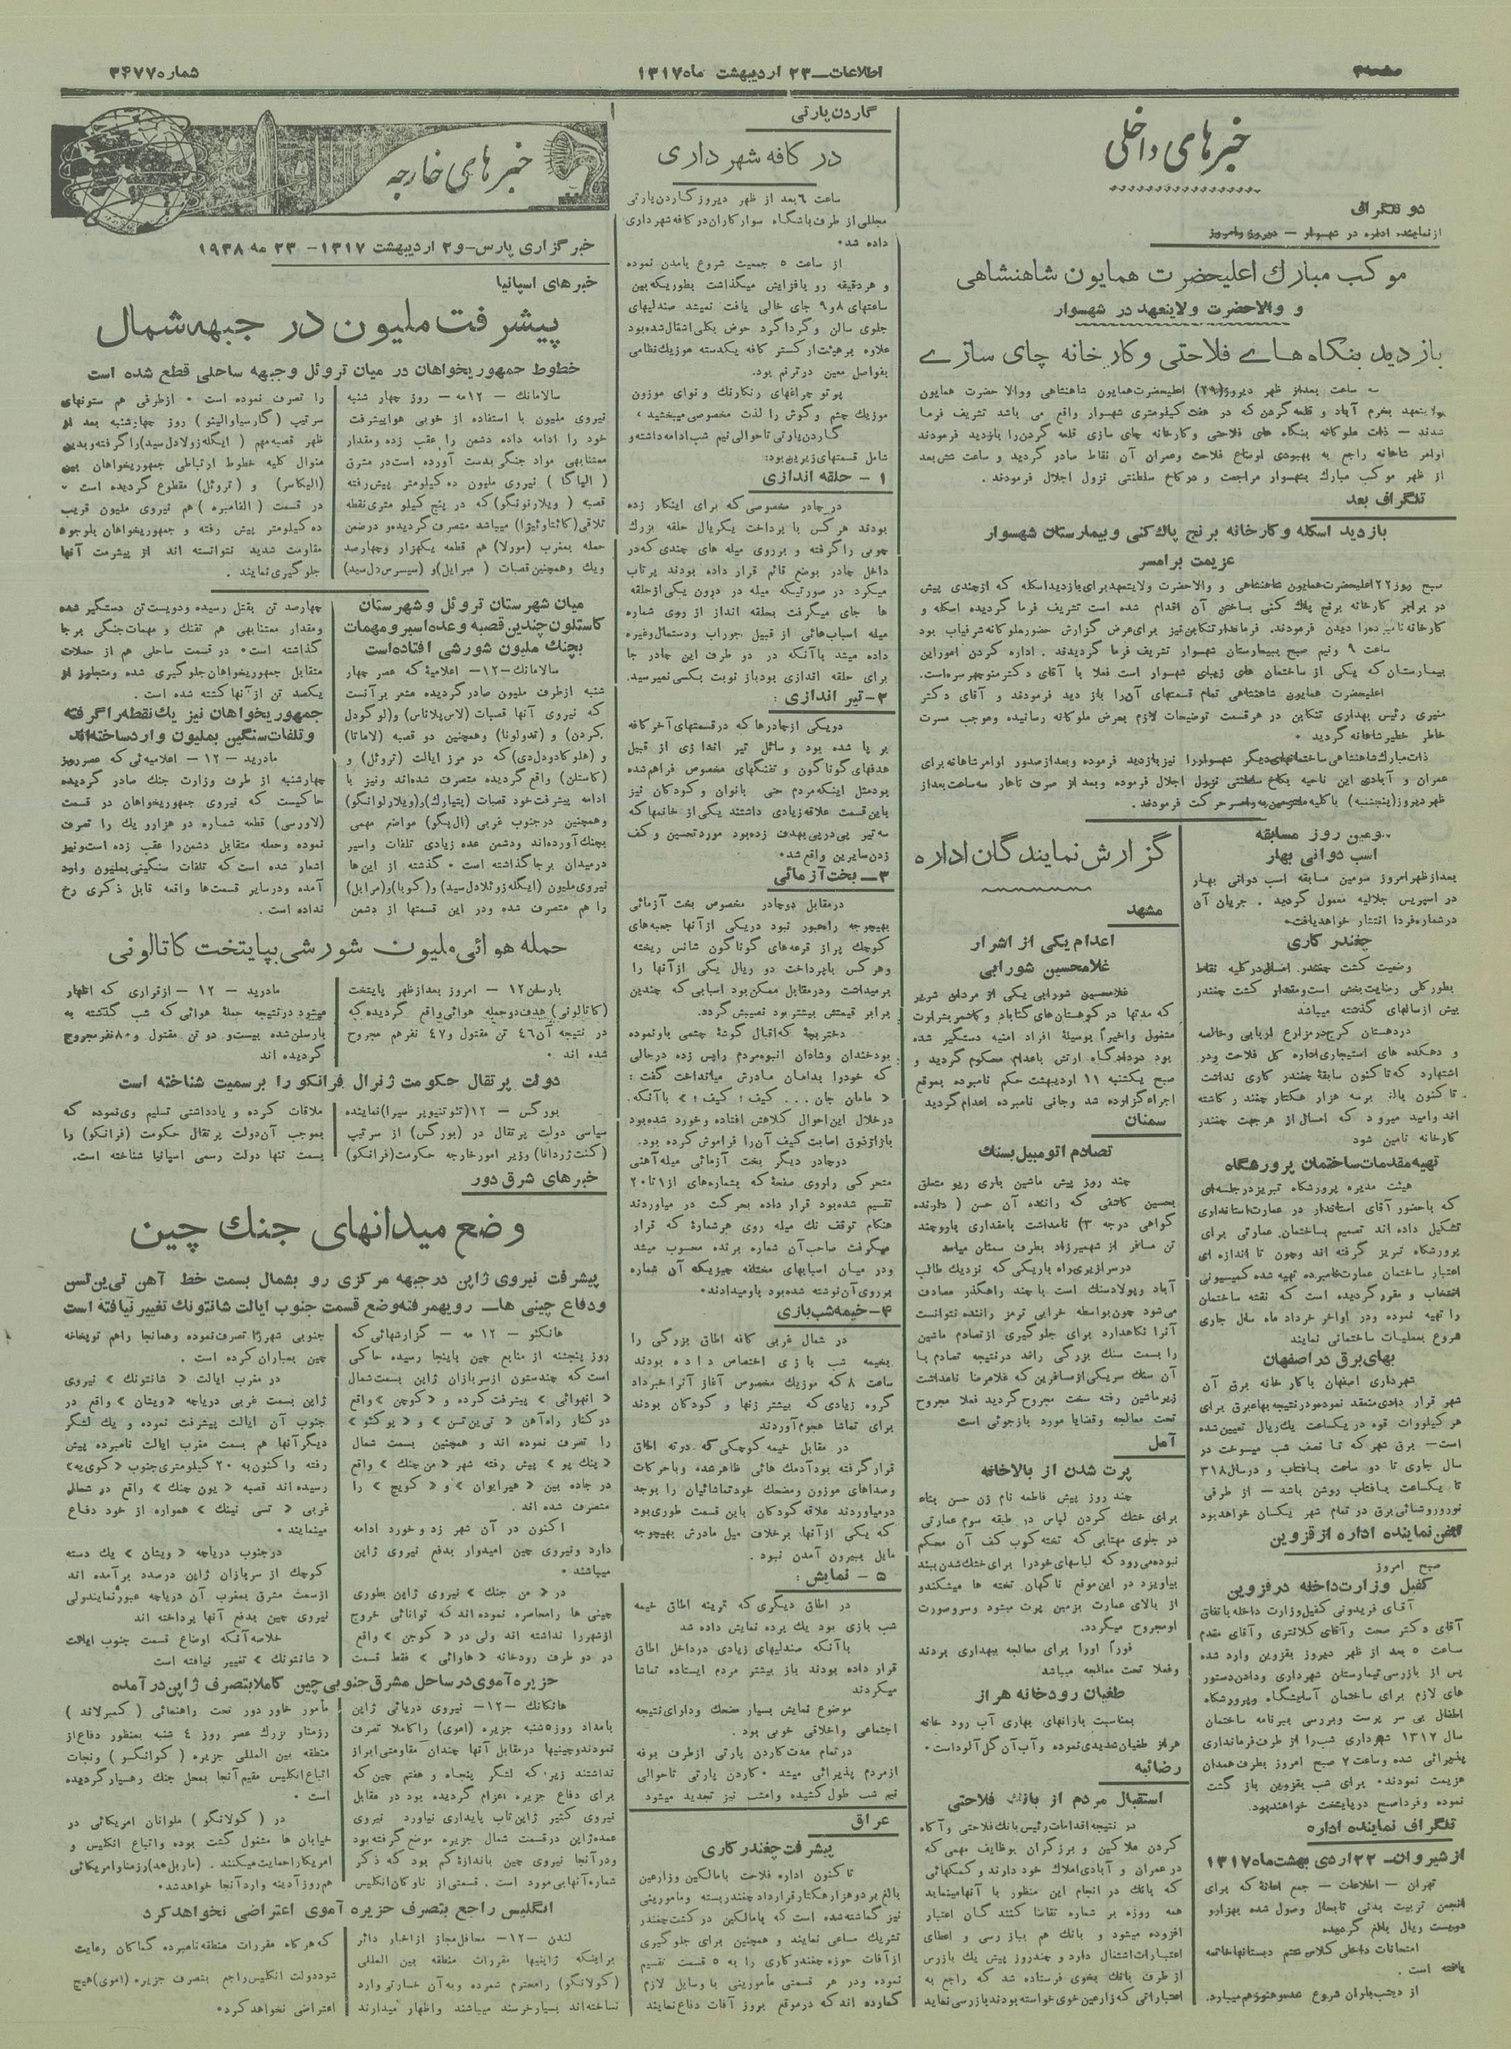 شماره ۳۴۷۷
اطلاعات ـ ۲۳ اردیبهشت ماه ۱۳۱۷
خبرهای داخلی
دو تلگراف
از نماینده اداره در شهسوار — دیروز و امروز
موکب مبارک اعلیحضرت همایون شاهنشاهی
و والاحضرت ولایتعهد در شهسوار
بازدید بنگاه‌های فلاحتی و کارخانه چای سازی
سه ساعت بعداز ظهر دیروز (۲۹) اعلیحضرت همایون شاهنشاهی ووالا حضرت همایون
ولایتعهد بخرم آباد و قلعه گردن که در هفت کیلومتری شهسوار واقع می باشد تشریف فرما
شدند — ذات ملوکانه بنگاه های فلاحتی وکارخانه چای سازی قلعه گردن را بازدید فرمودند
اوامر شاهانه راجع به بهبودی اوضاع فلاحت وعمران آن نقاط صادر گردید و ساعت شش بعد
از ظهر موکب مبارک بشهسوار مراجعت و درکاخ سلطنتی نزول اجلال فرمودند .
تلگراف بعد
بازدید اسکله وکارخانه برنج پاک کنی وبیمارستان شهسوار
عزیمت برامسر
صبح روز ۲۲ اعلیحضرت همایون شاهنشاهی و والاحضرت ولایتعهد برای بازدید اسکله که ازچندی پیش
در برابر کارخانه برنج پاک کنی بساختن آن اقدام شده است تشریف فرما گردیده اسکله و
کارخانه نامبرده را دیدن فرمودند. فرماندار تنکابن نیز برای عرض گزارش حضور ملوکانه شرفیاب بود
ساعت ۹ ونیم صبح ببیمارستان شهسوار تشریف فرما گردیدند . اداره کردن امور این
بیمارستان که یکی از ساختمان های زیبای شهسوار است فعلا با آقای دکتر منوچهر سره است.
اعلیحضرت همایون شاهنشاهی تمام قسمتهای آن را باز دید فرمودند و آقای دکتر
منیری رئیس بهداری تنکابن در هر قسمت توضیحات لازم بعرض ملوکانه رسانیده وموجب مسرت
خاطر خطیر شاهانه گردید .
ذات مبارک شاهنشاهی ساختمانهای دیگر شهسوار را نیز بازدید فرموده وبعد از صدور اوامر شاهانه برای
عمران و آبادی این ناحیه بکاخ سلطنتی نزول اجلال فرموده وبعد از صرف ناهار سه ساعت بعد از
ظهر دیروز (پنجشنبه) با کلیه ملتزمین به رامسر حرکت فرمودند.
سومین روز مسابقه
اسب دوانی بهار
بعدازظهر امروز سومین مسابقه اسب دوانی بهار
در اسپریس جلالیه معمول گردید . جریان آن
درشماره فردا انتشار خواهد یافت
چغندر کاری
وضعیت کشت چغندر امسال در کلیه نقاط
بطور کلی رضایت بخش است ومقدار کشت چغندر
بیش از سالهای گذشته میباشد
دردهستان کرج در مزارع اربابی وخالصه
و دهکده های استیجاری اداره کل فلاحت ودر
اشتهارد که تا کنون سابقهٔ چغندر کاری نداشت
تا کنون بالغ برسه هزار هکتار چغندر کاشته
اند وامید میرود که امسال از هر جهت چغندر
کارخانه تامین شود
تهیه مقدمات ساختمان پرورشگاه
هیئت مدیره پرورشگاه تبریز در جلسه ای
که باحضور آقای استاندار در عمارت استانداری
تشکیل داده اند تصمیم بساختمان عمارتی برای
پرورشگاه تبریز گرفته اند وچون تا اندازه ای
اعتبار ساختمان عمارت نامبرده تهیه شده کمیسیونی
انتخاب و مقرر گردیده است که نقشه ساختمان
را تهیه نموده ودر اواخر خرداد ماه سال جاری
شروع بعملیات ساختمانی نمایند
بهای برق در اصفهان
شهرداری اصفهان با کار خانه برق آن
شهر قرار دادی منعقد نموده ودر نتیجه بهای برق برای
هر کیلووات قوه در یکساعت یک ریال تعیین شده
است— برق شهر که تا نصف شب میسوخت در
سال جاری تا دو ساعت بآفتاب و در سال ۳۱۸
تا یکساعت بآفتاب روشن باشد — از طرفی
نور وروشنائی برق در تمام شهر یکسان خواهد بود
تلفن نماینده اداره از قزوین
صبح امروز
کفیل وزارت داخله در قزوین
آقای فریدونی کفیل وزارت داخله باتفاق
آقای دکتر صحت وآقای کلانتری وآقای مقدم
ساعت ۵ بعد از ظهر دیروز بقزوین وارد شده
پس از بازرسی تیمارستان شهرداری ودادن دستور
های لازم برای ساختمان آسایشگاه وپرورشگاه
اطفال بی سر پرست وبررسی ببرنامه ساختمان
سال ۱۳۱۷ شهرداری شب را از طرف فرمانداری
پذیرائی شده وساعت ۲ صبح امروز بطرف همدان
عزیمت نمودند. برای شب بقزوین باز گشت
نموده وفردا صبح در پایتخت خواهند بود.
تلگراف نماینده اداره
از شیروان ـ ۲۲ اردی بهشت ماه ۱۳۱۷
تهران — اطلاعات — جمع اعانهٔ که برای
انجمن تربیت بدنی تابحال وصول شده بهزارو
دویست ریال بالغ گردیده
امتحانات داخلی کلاس ششم دبستانها خاتمه
یافته است .
گزارش نمایندگان اداره
مشهد
اعدام یکی از اشرار
غلامحسین شورابی
غلامحسین شورابی یکی از مردان شریر
که مدتها در کوهستان های گناباد و کاشمر بشرارت
مشغول واخیراً بوسیلهٔ افراد امنیه دستگیر شده
بود در دادگاه ارتش باعدام محکوم گردید و
صبح یکشنبه ۱۱ اردیبهشت حکم نامبرده بموقع
اجراء گزارده شد وجانی نامبرده اعدام گردید
سمنان
تصادم اتومبیل بسنگ
چند روز پیش ماشین باری ریو متعلق
بحسین کاشفی که راننده آن حسن ( دارنده
گواهی درجه ۳) نامداشت بامقداری بار و چند
تن مسافر از شهمیرزاد بطرف سمنان میآمد
در سرازیری راه باریکی که نزدیک طالب
آباد و پولادسنگ است با چند راهگذر مصادف
می شود چون بواسطه خرابی ترمز راننده نتوانست
آنرا نگاهدارد برای جلو گیری از تصادم ماشین
را بسمت سنگ بزرگی راند درنتیجه تصادم با
آن سنگ سریکی از مسافرین که غلامرضا نامداشت
زیر ماشین رفته سخت مجروح گردید فعلا مجروح
تحت معالجه وقضایا مورد بازجوئی است
آمل
پرت شدن از بالاخانه
چند روز پیش فاطمه نام زن حسن پناه
برای خشک کردن لباس در طبقه سوم عمارتی
در جلوی مهتابی که تخته کوب کف آن محکم
نبوده می رود که لباسهای خودرا برای خشک شدن ببند
بیاویزد در این موقع ناگهان تخته ها میشکند و
از بالای عمارت بزمین پرت میشود و سرو صورت
او مجروح میگردد.
فوراً اورا برای معالجه ببهداری بردند
وفعلا تحت معالجه میباشد
طغیان رودخانه هراز
بمناسبت بارانهای بهاری آب رود خانه
هراز طغیان شدیدی نموده و آب آن گل آلود است .
رضائیه
استقبال مردم از بانک فلاحتی
در نتیجه اقدامات رئیس بانک فلاحتی وآگاه
کردن ملاکین و برزگران بوظایف مهمی که
در عمران و آبادی املاک خود دارند و کمکهائی
که بانک در انجام این منظور با آنها مینماید
همه روزه بر شماره تقاضا کنندگان اعتبار
افزوده میشود و بانک هم بباز رسی و اعطای
اعتبارات اشتغال دارد و چندروز پیش یک بازرس
از طرف بانک بخوی فرستاده شد که راجع به
اعتباراتی که زارعین خوی خواسته بودند بازرسی نماید
گاردن پارتی
در کافه شهرداری
ساعت ۶ بعد از ظهر دیروز گاردن پارتی
مجللی از طرف باشگاه سوار کاران در کافه شهرداری
داده شد .
از ساعت ۵ جمعیت شروع بآمدن نموده
و هر دقیقه رو بافزایش میگذاشت بطوریکه بین
ساعتهای ۸ و ۹ جای خالی یافت نمیشد صندلیهای
جلوی سالن و گرداگرد حوض بکلی اشغال شده بود
علاوه بر هیئت ارکستر کافه یکدسته موزیک نظامی
بفواصل معین در ترنم بود.
پرتو چراغهای رنگارنگ و نوای موزون
موزیک چشم و گوش را لذت مخصوصی میبخشید ،
گاردن پارتی تا حوالی نیم شب ادامه داشته و
شامل قسمتهای زیرین بود:
۱ - حلقه اندازی
در چادر مخصوصی که برای اینکار زده
بودند هر کس با پرداخت یک ریال حلقه بزرگ
چوبی را گرفته و برروی میله های چندی که در
داخل چادر بوضع قائم قرار داده بودند پرتاب
میکرد در صورتیکه میله در درون یکی از حلقه
ها جای میگرفت بحلقه انداز از روی شماره
میله اسباب هائی از قبیل جوراب ودستمال وغیره
داده میشد با آنکه در دو طرف این چادر جا
برای حلقه اندازی بود باز نوبت بکسی نمیرسید.
۲- تیر اندازی :
در یکی از چادرها که در قسمتهای آخر کافه
بر پا شده بود وسائل تیر اندازی از قبیل
هدفهای گوناگون و تفنگهای مخصوص فراهم شده
بود مثل اینکه مردم حتی بانوان و کودکان نیز
باین قسمت علاقه زیادی داشتند یکی از خانمها که
سه تیر پی در پی بهدف زده بود مورد تحسین و کف
زدن سایرین واقع شد.
۳ ـ بخت آزمائی
در مقابل دو چادر مخصوص بخت آزمائی
بهیچوجه راه عبور نبود در یکی از آنها جعبه های
کوچک پر از قرعه های گوناگون شانس ریخته
وهر کس با پرداخت دو ریال یکی از آنها را
بر میداشت ودر مقابل ممکن بود اسبابی که چندین
برابر قیمتش بیشتر بود نصیبش گردد.
دختر بچه که اقبال گوشهٔ چشمی باو نموده
بود خندان وشادان انبوه مردم را پس زده در حالی
که خودرا بدامان مادرش میانداخت گفت :
« مامان جان . . . کیف ! کیف ! » باآنکه
در خلال این احوال کلاهش افتاده و خورد شده بود
باز از ذوق اصابت کیف آن را فراموش کرده بود.
در چادر دیگر بخت آزمائی میله آهنی
متحرکی را روی صفحهٔ که بشماره های از ۱ تا ۲۰
تقسیم شده بود قرار داده بحرکت در میاوردند
هنگام توقف نک میله روی هر شمارهٔ که قرار
میگرفت صاحب آن شماره برنده محسوب میشد
ودر میان اسبابهای مختلفه چیزیکه آن شماره
بر روی آن نوشته شده بود باو میدادند.
۴- خیمه شب بازی
در شمال غربی کافه اطاق بزرگی را
بخیمه شب بازی اختصاص داده بودند
ساعت ۸ که موزیک مخصوص آغاز آنرا خبر داد
گروه زیادی که بیشتر زنها و کودکان بودند
برای تماشا هجوم آوردند
در مقابل خیمه کوچکی که در ته اطاق
قرار گرفته بود آدمک هائی ظاهر شده و با حرکات
وصداهای موزون ومضحک خود تماشائیان را بوجد
در میاوردند علاقه کودکان باین قسمت طوری بود
که یکی از آنها بر خلاف میل مادرش بهیچوجه
مایل ببیرون آمدن نبود .
۵ - نمایش :
در اطاق دیگری که قرینه اطاق خیمه
شب بازی بود یک پرده نمایش داده شد
با آنکه صندلیهای زیادی در داخل اطاق
قرار داده بودند باز بیشتر مردم ایستاده تماشا
میکردند
موضوع نمایش بسیار مضحک ودارای نتیجه
اجتماعی واخلاقی خوبی بود .
در تمام مدت گاردن پارتی از طرف بوفه
از مردم پذیرائی میشد . گاردن پارتی تا حوالی
نیم شب طول کشیده وامشب نیز تجدید میشود
عراق
پیشرفت چغندر کاری
تا کنون اداره فلاحت بامالکین وزارعین
بالغ بر دوهزار هکتار قرارداد چغندر بسته ومامورینی
نیز گماشته شده است که با مالکین در کشت چغندر
تشریک مساعی نمایند و همچنین برای جلوگیری
از آفات حوزه چغندر کاری را به ۵ قسمت تقسیم
نموده ودر هر قسمتی مأمورینی با وسایل لازم
گمارده اند که در موقع بروز آفات دفاع نمایند
خبرهای خارجه
خبرگزاری پارس - و ۲ اردیبهشت ۱۳۱۷ - ۲۳ مه ۱۹۳۸
خبرهای اسپانیا
پیشرفت ملیون در جبهه شمال
خطوط جمهوریخواهان در میان تروئل وجبهه ساحلی قطع شده است
سالامانک — ۱۲ مه — روز چهار شنبه
نیروی ملیون با استفاده از خوبی هوا پیشرفت
خود را ادامه داده دشمن را عقب زده ومقدار
معتنابهی مواد جنگی بدست آورده است در مشرق
( الپاگا ) نیروی ملیون ده کیلومتر پیش رفته
قصبه ( ویلارنونگو) که در پنج کیلو متری نقطه
تلاقی (کانتاوئیژا) میباشد متصرف گردیده و در ضمن
حمله بمغرب (مورلا) هم قطعه یکهزار وچهارصد
ویک وهمچنین قصبات ( میرابل) و (سیسرس دل سید)
را تصرف نموده است . از طرفی هم ستونهای
سرتیپ ( گارسیا والینو) روز چهارشنبه بعد از
ظهر قصبه مهم ( ایگله زولا دل سید) را گرفته وبدین
منوال کلیه خطوط ارتباطی جمهوریخواهان بین
(الیکاس) و ( تروئل) مقطوع گردیده است .
در قسمت ( الفامبره ) هم نیروی ملیون قریب
ده کیلومتر پیش رفته و جمهوریخواهان با وجود
مقاومت شدید نتوانسته اند از پیشرفت آنها
جلوگیری نمایند .
میان شهرستان تروئل و شهرستان
کاستلون چندین قصبه و عده اسیر و مهمات
بچنگ ملیون شورشی افتاده است
سالامانک —۱۲— اعلامیهٔ که عصر چهار
شنبه از طرف ملیون صادر گردیده مشعر برآنست
که نیروی آنها قصبات (لاس پلاناس) و (لو گودل
کردن) و (تدولونا) وهمچنین دو قصبه (لاماتا)
و (هلو کادودل دی) که در مرز ایالت (تروئل) و
(کاستلن) واقع گردیده متصرف شده‌اند ونیز با
ادامه پیشرفت خود قصبات (پتیارک) و (ویلارلوانگو)
وهمچنین در جنوب غربی (الپگو) مواضع مهمی
بچنگ آورده اند ودشمن عده زیادی تلفات واسیر
در میدان بر جا گذاشته است . گذشته از این ها
نیروی ملیون (ایگله زوئلادل سید) و (کوبا) و (مرابل)
را هم متصرف شده ودر این قسمتها از دشمن
چهارصد تن بقتل رسیده ودویست تن دستگیر شده
ومقدار معتنابهی هم تفنگ و مهمات جنگی برجا
گذاشته است . در قسمت ساحلی هم از حملات
متقابل جمهوریخواهان جلوگیری شده ومتجاوز از
یکصد تن از آنها کشته شده است .
جمهوریخواهان نیز یک نقطه را گرفته
وتلفات سنگین بملیون وارد ساخته‌اند
مادرید — ۱۲ — اعلامیه‌ئی که عصر روز
چهارشنبه از طرف وزارت جنگ صادر گردیده
حاکیست که نیروی جمهوریخواهان در قسمت
(لاورسی) قطعه شماره دو هزارو یک را تصرف
نموده وحمله متقابل دشمن را عقب زده است ونیز
اشعار شده است که تلفات سنگینی بملیون وارد
آمده ودر سایر قسمت ها واقعه قابل ذکری رخ
نداده است .
حمله هوائی ملیون شورشی بپایتخت کاتالونی
بارسلن ۱۲ — امروز بعدازظهر پایتخت
(کاتالونی) هدف دو حمله هوائی واقع گردیده که
در نتیجه آن ۴۶ تن مقتول و ۴۷ نفر هم مجروح
شده اند .
مادرید — ۱۲ — از قراری که اظهار
میشود در نتیجه حملهٔ هوائی که شب گذشته به
بارسلن شده بیست و دو تن مقتول و ۸۰ نفر مجروح
گردیده اند
دولت پرتقال حکومت ژنرال فرانکو را برسمیت شناخته است
بورگس — ۱۲ (تئوتنیو پرسیرا) نماینده
سیاسی دولت پرتقال در (بورگس) از سرتیپ
(کنت ژردانا) وزیر امور خارجه حکومت (فرانکو)
ملاقات کرده و یادداشتی تسلیم وی نموده که
بموجب آن دولت پرتقال حکومت (فرانکو) را
بسمت تنها دولت رسمی اسپانیا شناخته است.
خبرهای شرق دور
وضع میدانهای جنگ چین
پیشرفت نیروی ژاپن در جبهه مرکزی رو بشمال بسمت خط آهن تی‌ین تسن
ودفاع چینی هاـ رویهمرفته وضع قسمت جنوب ایالت شانتونگ تغییر نیافته است
هانکئو — ۱۲ مه — گزارشهائی که
روز پنجشنه از منابع چین باینجا رسیده حاکی
است که چند ستون از سربازان ژاپن بسمت شمال
« انهوائی » پیشرفت کرده و « کوچن » واقع
در کنار راه آهن « تی ین تسن » و « پوکئو »
را تصرف نموده اند و همچنین بسمت شمال
« پنک پو » پیش رفته شهر « من چنگ » واقع
در جاده بین « هیرایوان » و « کویچ » را
متصرف شده اند .
اکنون در آن شهر زد و خورد ادامه
دارد ونیروی چین امیدوار بدفع نیروی ژاپن
میباشند .
در « من جنگ » نیروی ژاپن بطوری
چینی ها را محاصره نموده اند که توانائی خروج
از شهر را نداشته اند ولی در « کوجن » واقع
در دو طرف رودخانه « هاوائی » فقط قسمت
جنوبی شهر را تصرف نموده وهمانجا راهم توپخانه
چین بمباران کرده است .
در مغرب ایالت « شانتونگ » نیروی
ژاپن بسمت غربی دریاچه « ویشان » واقع در
جنوب آن ایالت پیشرفت نموده و یک لشگر
دیگر آنها هم بسمت مغرب ایالت نامبرده پیش
رفته واکنون به ۲۰ کیلومتری جنوب « کوی یه »
رسیده اند قصبه « یون چنگ » واقع در شمال
غربی « تسی نینگ » همواره از خود دفاع
مینمایند .
در جنوب دریاچه « ویشان » یک دسته
کوچک از سربازان ژاپن درصدد برآمده اند
از سمت مشرق بمغرب آن دریاچه عبور نمایند ولی
نیروی چین بدفع آنها پرداخته اند
خلاصه آنکه اوضاع قسمت جنوب ایالت
« شانتونگ » تغییر نیافته است
جزیره آموی در ساحل مشرق جنوبی چین کاملا بتصرف ژاپن در آمده
هانکانک —۱۲— نیروی دریائی ژاپن
بامداد روز ۵ شنبه جزیره (اموی) را کاملا تصرف
نمودند وچینیها در مقابل آنها چندان مقاومتی ابراز
نداشتند زیرا که لشگر پنجاه و هفتم چین که
برای دفاع جزیره اعزام گردیده بود در مقابل
نیروی کثیر ژاپن تاب پایداری نیاورد نیروی
عمده ژاپن در قسمت شمال جزیره موضع گرفته بود
ودر آنجا نیروی چین باندازهٔ کم بود که ذکر
شماره آنها بی مورد است . قسمتی از ناوگان انگلیس
مأمور خاور دور تحت راهنمائی ( کمبرلاند )
رزمناو بزرگ عصر روز ۴ شنبه بمنظور دفاع از
منطقه بین المللی جزیره ( کولنگسو ) ونجات
اتباع انگلیس مقیم آنجا بمحل جنگ رهسپار گردیده
است .
در ( کولانگو ) ملوانان امریکائی در
خیابان ها مشغول گشت بوده واتباع انگلیس و
امریکا را حمایت میکنند . (ماربل هد) رزمناو امریکائی
هم روز آدینه وارد آنجا خواهد شد.
انگلیس راجع بتصرف جزیره آموی اعتراضی نخواهد کرد
لندن —۱۲— محافل مجاز از اخبار دائر
براینکه ژاپنیها مقررات منطقه بین المللی
(کولانگو) را محترم شمرده وبه آن خسارتی وارد
نساخته اند بسیار خرسند میباشند واظهار میدارند
که هر گاه مقررات منطقه نامبرده کماکان رعایت
شود دولت انگلیس راجع بتصرف جزیره (اموی) هیچ
اعتراضی نخواهد کرد.